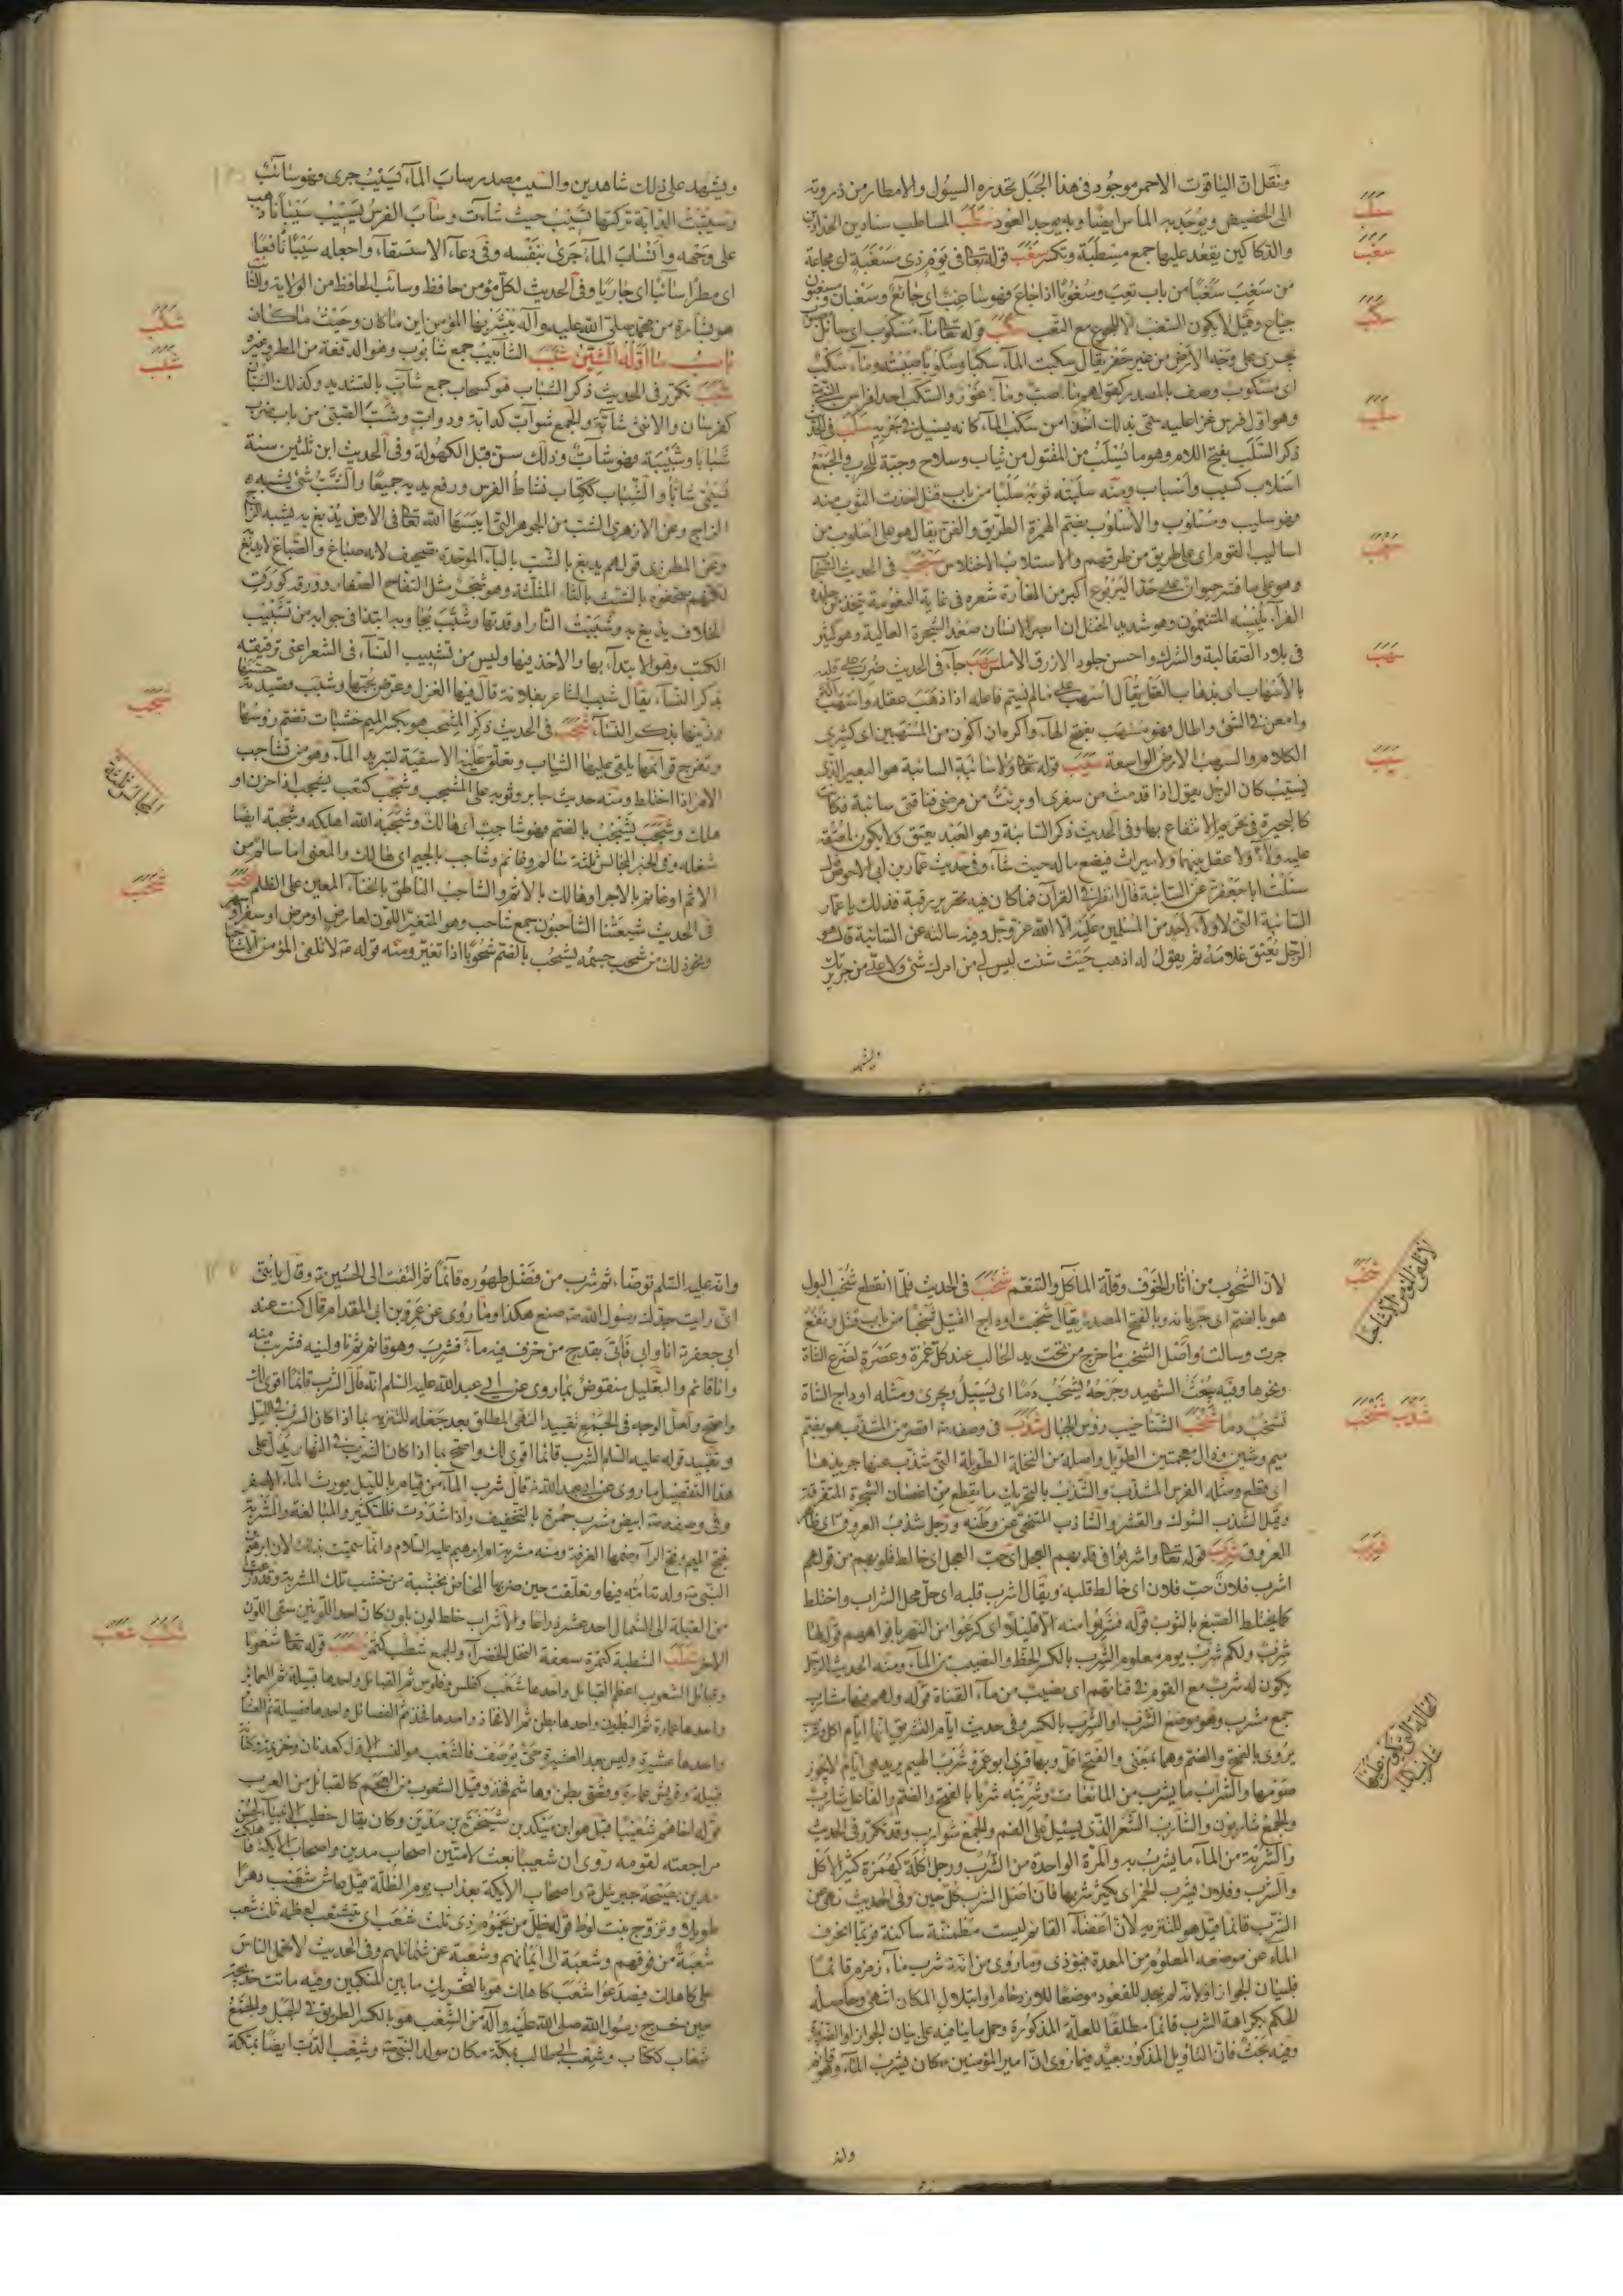 ونقل ان الياقوت الاحمر موجود في هذا الجبل تحدره السيول والامطار من ذروته
الى الحضيض ويوجد به الماس ايضا وبه يوجد العود سطب المساطب سنادين الحدادين
والدكاكين يقعد عليها جمع مسطبة وتكسر سغب قوله تعالى في يوم ذي مسغبة اي مجاعة
من سغب سغبا من باب تعب وسغوبا اذا جاع فهو ساغب اي جائع وسغبان
جياع وقيل لا يكون السغب الا الجوع مع التعب سكب قوله تعالى ماء مسكوب اي سائل
يجري على وجه الارض من غير حفر يقال سكبت الماء سكبا وسكوبا صببته وماء سكب
اي مسكوب وصف بالمصدر كقولهم ماء صب وماء غور والسكب احد افراس النبي
وهو اول فرس غزا عليه سمي بذلك اخذا من سكب الماء كانه يسيل في جريه سلب
ذكر السلب بفتح اللام وهو ما يسلب من المقتول من ثياب وسلاح وجبة للحرب والجمع
اسلاب كسبب واسباب ومنه سلبته ثوبه سلبا من باب قتل اخذت الثوب منه
فهو سليب ومسلوب والاسلوب بضم الهمزة الطريق والفن يقال هو على اسلوب من
اساليب القوم اي على طريق من طرقهم والاستلاب الاختلاس سنجب في الحديث
وهو على ما فسر حيوان على حد اليربوع اكبر من الفارة شعره في غاية النعومة يتخذ من جلده
الفراء يلبسه المتنعمون وهو شديد الختل ان ابصر الانسان صعد الشجرة العالية وهو كثير
في بلاد الصقالبة والترك واحسن جلوده الازرق الاملس سهب جاء في الحديث ضرب على قلبه
بالاسهاب اي بذهاب العقل يقال اسهب على ما لم يسم فاعله اذا ذهب عقله واسهب
وامعن في الشئ واطال فهو مسهب بفتح الهاء واكره ان اكون من المسهبين اي كثيري
الكلام والسهب الارض الواسعة سيب قوله تعالى ولا سائبة السائبة هو البعير الذي
يسيب كان الرجل يقول اذا قدمت من سفري او برئت من مرضي فناقتي سائبة فكانت
كالبحيرة في تحريم الانتفاع بها وفي الحديث ذكر السائبة وهو العبد يعتق ولا يكون لمعتقه
عليه ولاء ولا عقل بينهما ولا ميراث فيضع ماله حيث شاء وفي حديث عمار بن ابي الاحوص
سئلت ابا جعفر عن السائبة قال انظر في القرآن فما كان فيه تحرير رقبة فذلك يا عمار
السائبة التي لا ولاء لاحد من المسلمين عليه الا الله عز وجل وقد سالته عن السائبة قال هو
الرجل يعتق غلامه ثم يقول له اذهب حيث شئت ليس لي من امرك شئ ولا علي من جريرتك
ويشهد
سطب
سغب
سكب
سلب
سنجب
سهب
سيب
ويشهد على ذلك شاهدين والسيب مصدر ساب الماء يسيب جرى وهو سائب
وسيبت الدابة تركتها تسيب حيث شاءت وساب الفرس يسيب سيبانا ذهب
على وجهه وانساب الماء جرى بنفسه وفي دعاء الاستسقاء واجعله سيبا نافعا
اي مطرا سائبا اي جاريا وفي الحديث لكل مؤمن حافظ وسائب الحافظ من الولاية والسائب
هو بشارة من محمد صلى الله عليه وآله يبشر بها المؤمن اين ما كان وحيث ما كان
باب ما اوله الشين شاب الشآبيب جمع شابوب وهو الدفعة من المطر وغيره
شبب تكرر في الحديث ذكر الشباب هو كسحاب جمع شاب بالتشديد وكذلك الشبان
كفرسان والانثى شابة والجمع شواب كدابة ودواب وشب الصبي من باب ضرب
شبابا وشبيبة وهو شاب وذلك سن قبل الكهولة وفي الحديث ابن ثلثين سنة
يسمى شابا والشباب ككتاب نشاط الفرس ورفع يديه جميعا والشب شئ يشبه
الزاج وعن الازهري الشب من الجواهر التي انبتها الله تعالى في الارض يدبغ به يشبه الزاج
وعن المطرزي قولهم يدبغ بالشب بالباء الموحدة تصحيف لانه صباغ والصباغ لا يدبغ
لكنهم صحفوه بالشث بالثاء المثلثة وهو شجر مثل التفاح الصغار وورقه كورق
الخلاف يدبغ به وشببت النار اوقدتها وشبب ابتدا في جوابه من تشبيب
الكتب وهو الابتداء بها والاخذ فيها وليس من تشبيب النساء في الشعر اعني ترقيقه
بذكر النساء يقال شبب الشاعر بفلانة قال فيها الغزل وعرض بحبها وشبب قصيدته
وزينها بذكر النساء شجب في الحديث ذكر المشجب هو بكسر الميم خشبات تضم رؤسها
وتفرج قوائمها يلقى عليها الثياب وتعلق عليه الاسقية لتبريد الماء وهو من تشاجب
الامر اذا اختلط ومنه حديث جابر وثوبه على المشجب وشجب كتعب يشجب اذا حزن او
هلك وشجب يشجب بالضم فهو شاجب اي هالك وشجبه الله اهلكه وشجبه ايضا
شغله وفي الخبر المجالس ثلثة سالم وغانم وشاجب بالجيم اي هالك والمعنى اما سالم من
الاثم او غانم بالاجر او هالك بالاثم والشاجب الناطق بالخناء المعين على الظلم شحب
في الحديث شيعتنا الشاحبون جمع شاحب وهو المتغير اللون لعارض او مرض او سفر او
ونحو ذلك من شحب جسمه يشحب بالضم شحوبا اذا تغير ومنه قوله لا تلقى المؤمن الا شاحبا
شجب
المجالس ثلثة
شحب
لان الشحوب من اثار الخوف وقلة الماكل والتنعم شخب في الحديث فلما انقطع شخب البول
هو بالضم اي جريانه وبالفتح المصدر يقال شخبت اوداج القتيل شخبا من باب قتل ونفع
جرت وسالت واصل الشخب ما خرج من تحت يد الحالب عند كل غمزة وعصرة لضرع الشاة
ونحوها وفيه يبعث الشهيد وجرحه يشخب دما اي يسيل ويجري ومثله اوداج الشاة
تشخب دما شنخب الشناخيب رؤس الجبال شذب في وصفه اقصر من المشذب هو بضم
ميم وشين وذال معجمتين الطويل واصله من النخلة الطويلة التي شذب عنها جريدها
اي قطع ومثله الفرس المشذب والشذب بالتحريك ما يقطع من اغصان الشجرة المتفرقة
وقيل الشذب الشوك والقشر والشاذب المتنحي عن وطنه ورجل شذب العروق اي ظاهر
العروق شرب قوله تعالى واشربوا في قلوبهم العجل اي حب العجل اي خالط قلوبهم من قولهم
اشرب فلان حب فلان اي خالط قلبه ويقال اشرب قلبه اي حل محل الشراب واختلط
كما يختلط الصبغ بالثوب قوله فشربوا منه الا قليلا اي كرعوا من النهر بافواههم قوله لها
شرب ولكم شرب يوم معلوم الشرب بالكسر الحظ والنصيب من الماء ومنه الحديث الرجل
يكون له شرب مع القوم في قناتهم اي نصيب من ماء القناة قوله ولهم فيها مشارب
جمع مشرب وهو موضع الشرب او الشرب بالكسر وفي حديث ايام التشريق انها ايام اكل وشرب
يروى بالفتح والضم وهما بمعنى والفتح اقل وبها قرئ ابو عمرو شرب الهيم يريد هي ايام لا يجوز
صومها والشراب ما يشرب من المائعات وشربته شربا بالفتح والضم والفاعل شارب
والجمع شاربون والشارب الشعر الذي يسيل على الفم والجمع شوارب وقد تكرر في الحديث
والشربة من الماء ما يشرب به والمرة الواحدة من الشرب ورجل اكلة كهمزة كثير الاكل
والشرب وفلان يشرب الخمر اي يكثر شربها فان اصل الشرب كل حين وفي الحديث نهى عن
الشرب قائما قيل هو للتنزيه لان اعضاء القائم ليست مطمئنة ساكنة فربما انحرف
الماء عن موضعه المعلوم من المعدة فيؤذي وما روي من انه شرب ماء زمزم قائما
فلبيان الجواز او لانه لم يجد للقعود موضعا للازدحام او ابتلال المكان انتهى وحاصله
الحكم بكراهة الشرب قائما مطلقا للعلة المذكورة وحمل ما ينافيه على بيان الجواز او الضرورة
وفيه بحث فان التاويل المذكور بعيد فيما روى ان امير المؤمنين كان يشرب الماء وهو قائم
وانه
شخب
لا تلقى المؤمن الا شاحبا
شذب شنخب
شرب
وانه عليه السلام توضاء ثم شرب من فضل طهوره قائما ثم التفت الى الحسين وقال يا بني
اني رايت جدك رسول الله صنع هكذا وما روي عن عمرو بن ابي المقدام قال كنت عند
ابي جعفر انا وابي فاتي بقدح من خزف فيه ماء فشرب وهو قائم ثم ناولنيه فشربت منه
وانا قائم والتعليل منقوض بما روي عن ابي عبد الله عليه السلام انه قال الشرب قائما اقوى لك
واصح ولعل الوجه في الجمع تقييد النهي المطلق بعد جعله للتنزيه بما اذا كان الشرب في الليل
وتقييد قوله عليه السلام الشرب قائما اقوى لك واصح بما اذا كان الشرب في النهار يدل على
هذا التفصيل ما روى عن ابي عبد الله قال شرب الماء من قيام بالليل يورث الماء الاصفر
وفي وصفه ابيض مشرب حمرة بالتخفيف واذا شددت فللتكثير والمبالغة والمشربة
بفتح الميم وفتح الراء وضمها الغرفة ومنه مشربة ام ابرهيم عليه السلام وانما سميت بذلك لان ابرهيم
النبي ولدته امه فيها وتعلقت حين ضربها المخاض بخشبة من خشب تلك المشربة وقد ذرعت
من القبلة الى الشمال احد عشر ذراعا والاشراب خلط لون بلون كان احد اللونين سقى اللون
الاخر شطب الشطبة كتمرة سعفة النخل الخضراء والجمع شطب كتمر شعب قوله تعالى شعوبا
وقبائل الشعوب اعظم القبائل واحدها شعب كفلس وفلوس ثم القبائل واحدها قبيلة ثم العمائر
واحدها عمارة ثم البطون واحدها بطن ثم الافخاذ واحدها فخذ ثم الفصائل واحدها فصيلة ثم العشائر
واحدها عشيرة وليس بعد العشيرة حي يوصف فالشعب هو النسب الاول كعدنان وخزيمة
قبيلة وقريش عمارة وقصي بطن وهاشم فخذ وقيل الشعوب من العجم كالقبائل من العرب
قوله اخاهم شعيبا قيل هو ابن ميكد بن يشخر بن مدين وكان يقال خطيب الانبياء لحسن
مراجعته لقومه روى ان شعيبا بعث لامتين اصحاب مدين واصحاب الايكة
مدين بصيحة جبرئيل واصحاب الايكة بعذاب يوم الظلة قيل عاش شعيب دهرا
طويلا وتزوج بنت لوط قوله ظل من يحموم ذي ثلث شعب اي يتشعب لعظمه ثلث شعب
شعبة من فوقهم وشعبة الى ايمانهم وشعبة عن شمائلهم وفي الحديث لا تحمل الناس
على كاهلك فيصدعوا شعب كاهلك هو بالتحريك ما بين المنكبين وفيه ماتت خديجة
حين خرج رسول الله صلى الله عليه وآله من الشعب هو بالكسر الطريق في الجبل والجمع
شعاب ككتاب وشعب ابي طالب بمكة مكان مولد النبي وشعب الدب ايضا بمكة
شطب شعب